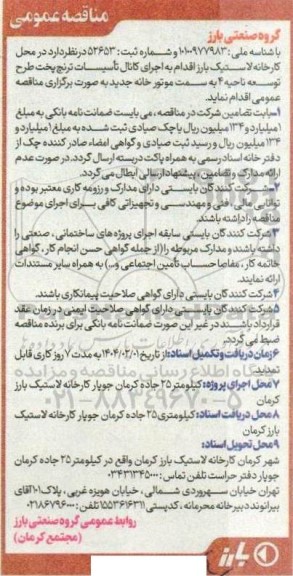 مناقصه عمومی
گروه صنعتی بارز
با شناسه ملی: ۱۰۱۰۰۹۷۷۹۸۳ و شماره ثبت: ۵۲۶۵۳ در نظر دارد در محل
کارخانه لاستیک بارز اقدام به اجرای کانال تأسیسات ترنچ پخت طرح
توسعه ناحیه ۴ به سمت موتور خانه جدید به صورت برگزاری مناقصه
عمومی اقدام نماید.
۱-بابت تضامین شرکت در مناقصه، می بایست ضمانت نامه بانکی به مبلغ
۱میلیارد و ۱۳۴ میلیون ریال یا چک صیادی ثبت شده به مبلغ ۱ میلیارد و
۱۳۴ میلیون ریال و رسید ثبت صیادی و گواهی امضاء صادر کننده چک از
دفتر خانه اسناد رسمی به همراه پاکت دربسته ارسال گردد. در صورت عدم
ارائه مدارک و تضامین، پیشنهاد ارسالی ابطال می گردد.
۲-شرکت کنندگان بایستی دارای مدارک و رزومه کاری معتبر بوده و
توانایی مالی، فنی و مهندسی و تجهیزاتی کافی برای اجرای موضوع
مناقصه را داشته باشند.
۳شرکت کنندگان بایستی سابقه اجرای پروژه های ساختمانی، صنعتی را
داشته باشند و مدارک مربوطه را (از جمله گواهی حسن انجام کار، گواهی
خاتمه کار، مفاصا حساب تأمین اجتماعی و..) به همراه سایر مستندات
ارائه نمایند.
۴شرکت کنندگان بایستی دارای گواهی صلاحیت پیمانکاری باشند.
۵شرکت کنندگان بایستی دارای گواهی صلاحیت ایمنی در زمان عقد
قرارداد باشند در غیر این صورت ضمانت نامه بانکی برای برنده مناقصه
ضبط می گردد.
۶زمان دریافت و تکمیل اسناد: از تاریخ ۱۴۰۴/۰۲/۰۱ به مدت ۷ روز کاری قابل
تمدید
۷محل اجرای پروژه: کیلومتر ۲۵ جاده کرمان جوپار کارخانه لاستیک بارز
کرمان
۸محل دریافت اسناد: کیلومتری ۲۵ جاده کرمان جوپار کارخانه لاستیک
بارز کرمان
۹محل تحویل اسناد:
شهر کرمان کارخانه لاستیک بارز کرمان واقع در کیلومتر ۲۵ جاده کرمان
جوپار دفتر حراست تلفن تماس: ۰۳۴۳۱۳۴۵۰۰۰
تهران خیابان سهروردی شمالی، خیابان هویزه غربی، پلاک ۱۰۱ آقای
بیرانوند دبیرخانه محرمانه، کدپستی ۱۵۵۳۶۱۶۳۱۱ تلفن تماس: ۰۲۱۸۶۷۹۶۰۰۰
روابط عمومی گروه صنعتی بارز
(مجتمع کرمان)
بارز
۰۲۱-۸۸۳۴۹۶۷۰-۵